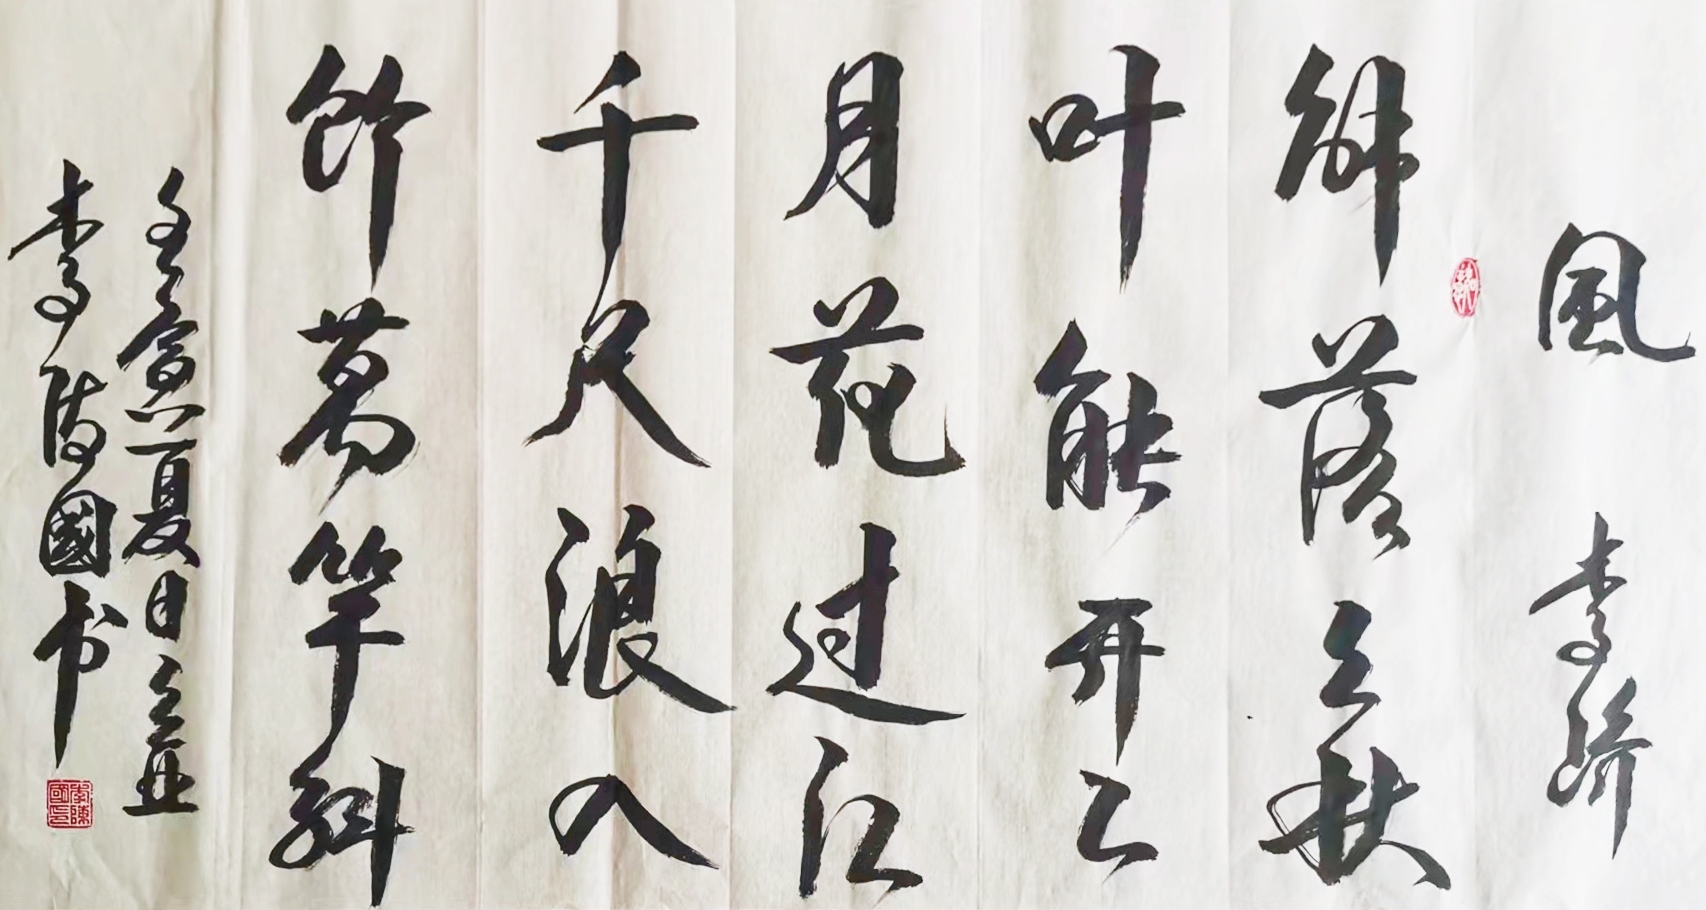 風 李嶠
解落三秋
叶能开二
月花过江
千尺浪入
竹萬竿斜
壬寅夏日
李陈國书
李陳國印